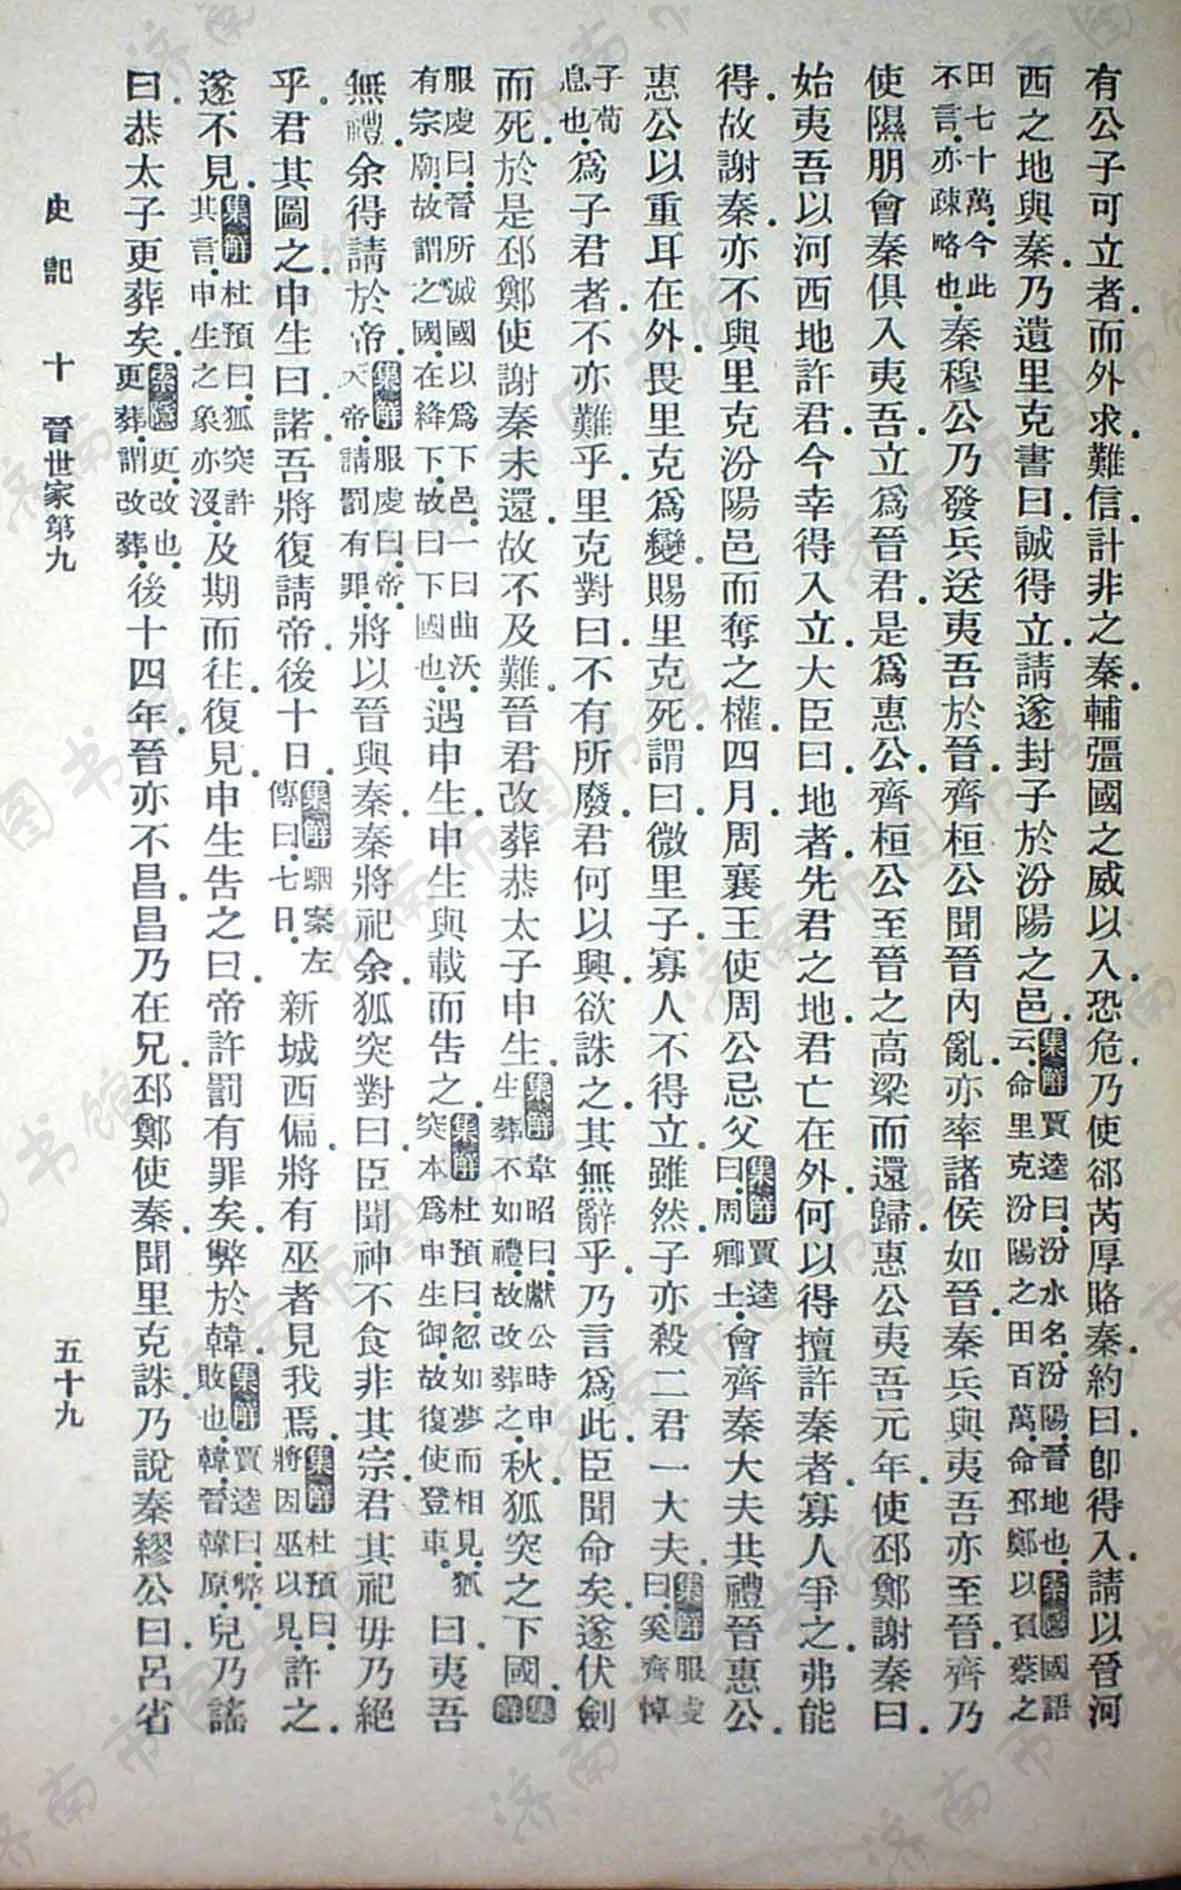 有公子可立者而外求難信計非之秦輔彊國之威以入恐危乃使郤芮厚賂秦約曰即得入請以晉河
西之地與秦乃遺里克書曰誠得立請遂封子於汾陽之邑集解賈逵曰汾水名汾陽晉地也索隱國語云命里克汾陽之田百萬命邳鄭以負蔡之
田七十萬今此不言亦疎略也秦穆公乃發兵送夷吾於晉齊桓公聞晉內亂亦率諸侯如晉秦兵與夷吾亦至晉齊乃
使隰朋會秦俱入夷吾立爲晉君是爲惠公齊桓公至晉之高梁而還歸惠公夷吾元年使邳鄭謝秦曰
始夷吾以河西地許君今幸得入立大臣曰地者先君之地君亡在外何以得擅許秦者寡人爭之弗能
得故謝秦亦不與里克汾陽邑而奪之權四月周襄王使周公忌父集解賈逵曰周卿士會齊秦大夫共禮晉惠公
惠公以重耳在外畏里克爲變賜里克死謂曰微里子寡人不得立雖然子亦殺二君一大夫集解服虔曰奚齊悼
子荀息也爲子君者不亦難乎里克對曰不有所廢君何以興欲誅之其無辭乎乃言爲此臣聞命矣遂伏劍
而死於是邳鄭使謝秦未還故不及難晉君改葬恭太子申生集解韋昭曰獻公時申生葬不如禮故改葬之秋狐突之下國集解
服虔曰晉所滅國以爲下邑一曰曲沃有宗廟故謂之國在絳下故曰下國也遇申生申生與載而告之集解杜預曰忽如夢而相見狐突本爲申生御故復使登車曰夷吾
無禮余得請於帝集解服虔曰帝天帝請罰有罪將以晉與秦秦將祀余狐突對曰臣聞神不食非其宗君其祀毋乃絕
乎君其圖之申生曰諾吾將復請帝後十日集解駰案左傳曰七日新城西偏將有巫者見我焉集解杜預曰將因巫以見許之
遂不見集解杜預曰狐突許其言申生之象亦沒及期而往復見申生告之曰帝許罰有罪矣弊於韓集解賈逵曰弊敗也韓晉韓原兒乃謠
曰恭太子更葬矣索隱更改也更葬謂改葬後十四年晉亦不昌昌乃在兄邳鄭使秦聞里克誅乃說秦繆公曰呂省
史記 十 晉世家第九 五十九